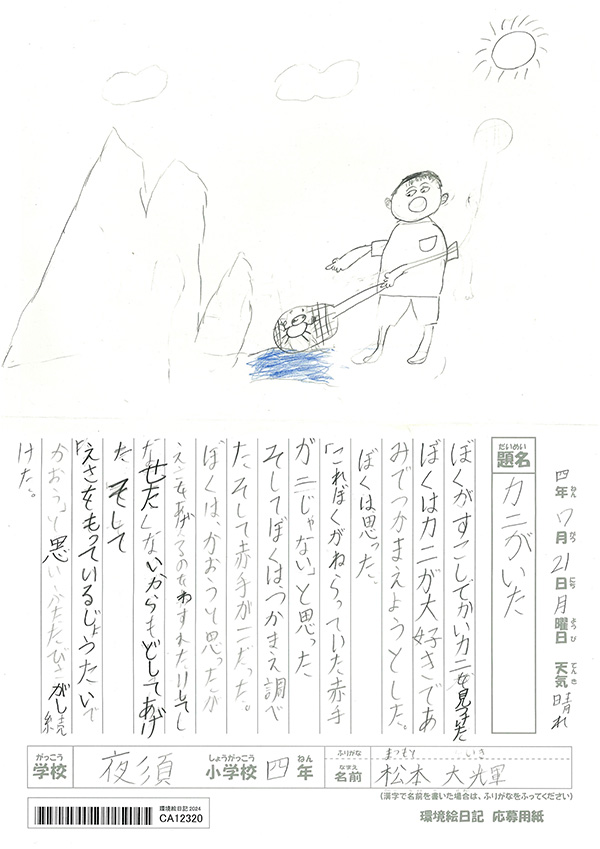 四年 7月21日 月曜日 天気 晴れ
ねん がつ にち ようび てんき
だいめい
題名 カニがいた
ぼくがすこしでかいカニを見つけた
ぼくはカニが大好きであ
みでつかまえようとした。
ぼくは思った。
「これぼくがねらっていた赤手
ガニじゃない」と思った
そしてぼくはつかまえ調べ
た。そして赤手ガニだった。
ぼくは、かおうと思ったが
えさをあげるのをわすれたりしてし
なせたくないからもどしてあげ
た そして
「えさをもっているじょうたいで
かおう」と思いふたたびさがし続
けた。
がっこう しょうがっこう ねん ふりがな まつもと いき
学校 夜須 小学校 四年 なまえ 名前 松本 大輝
(漢字で名前を書いた場合は、ふりがなをふってください)
環境絵日記2024
CA12320
環境絵日記 応募用紙